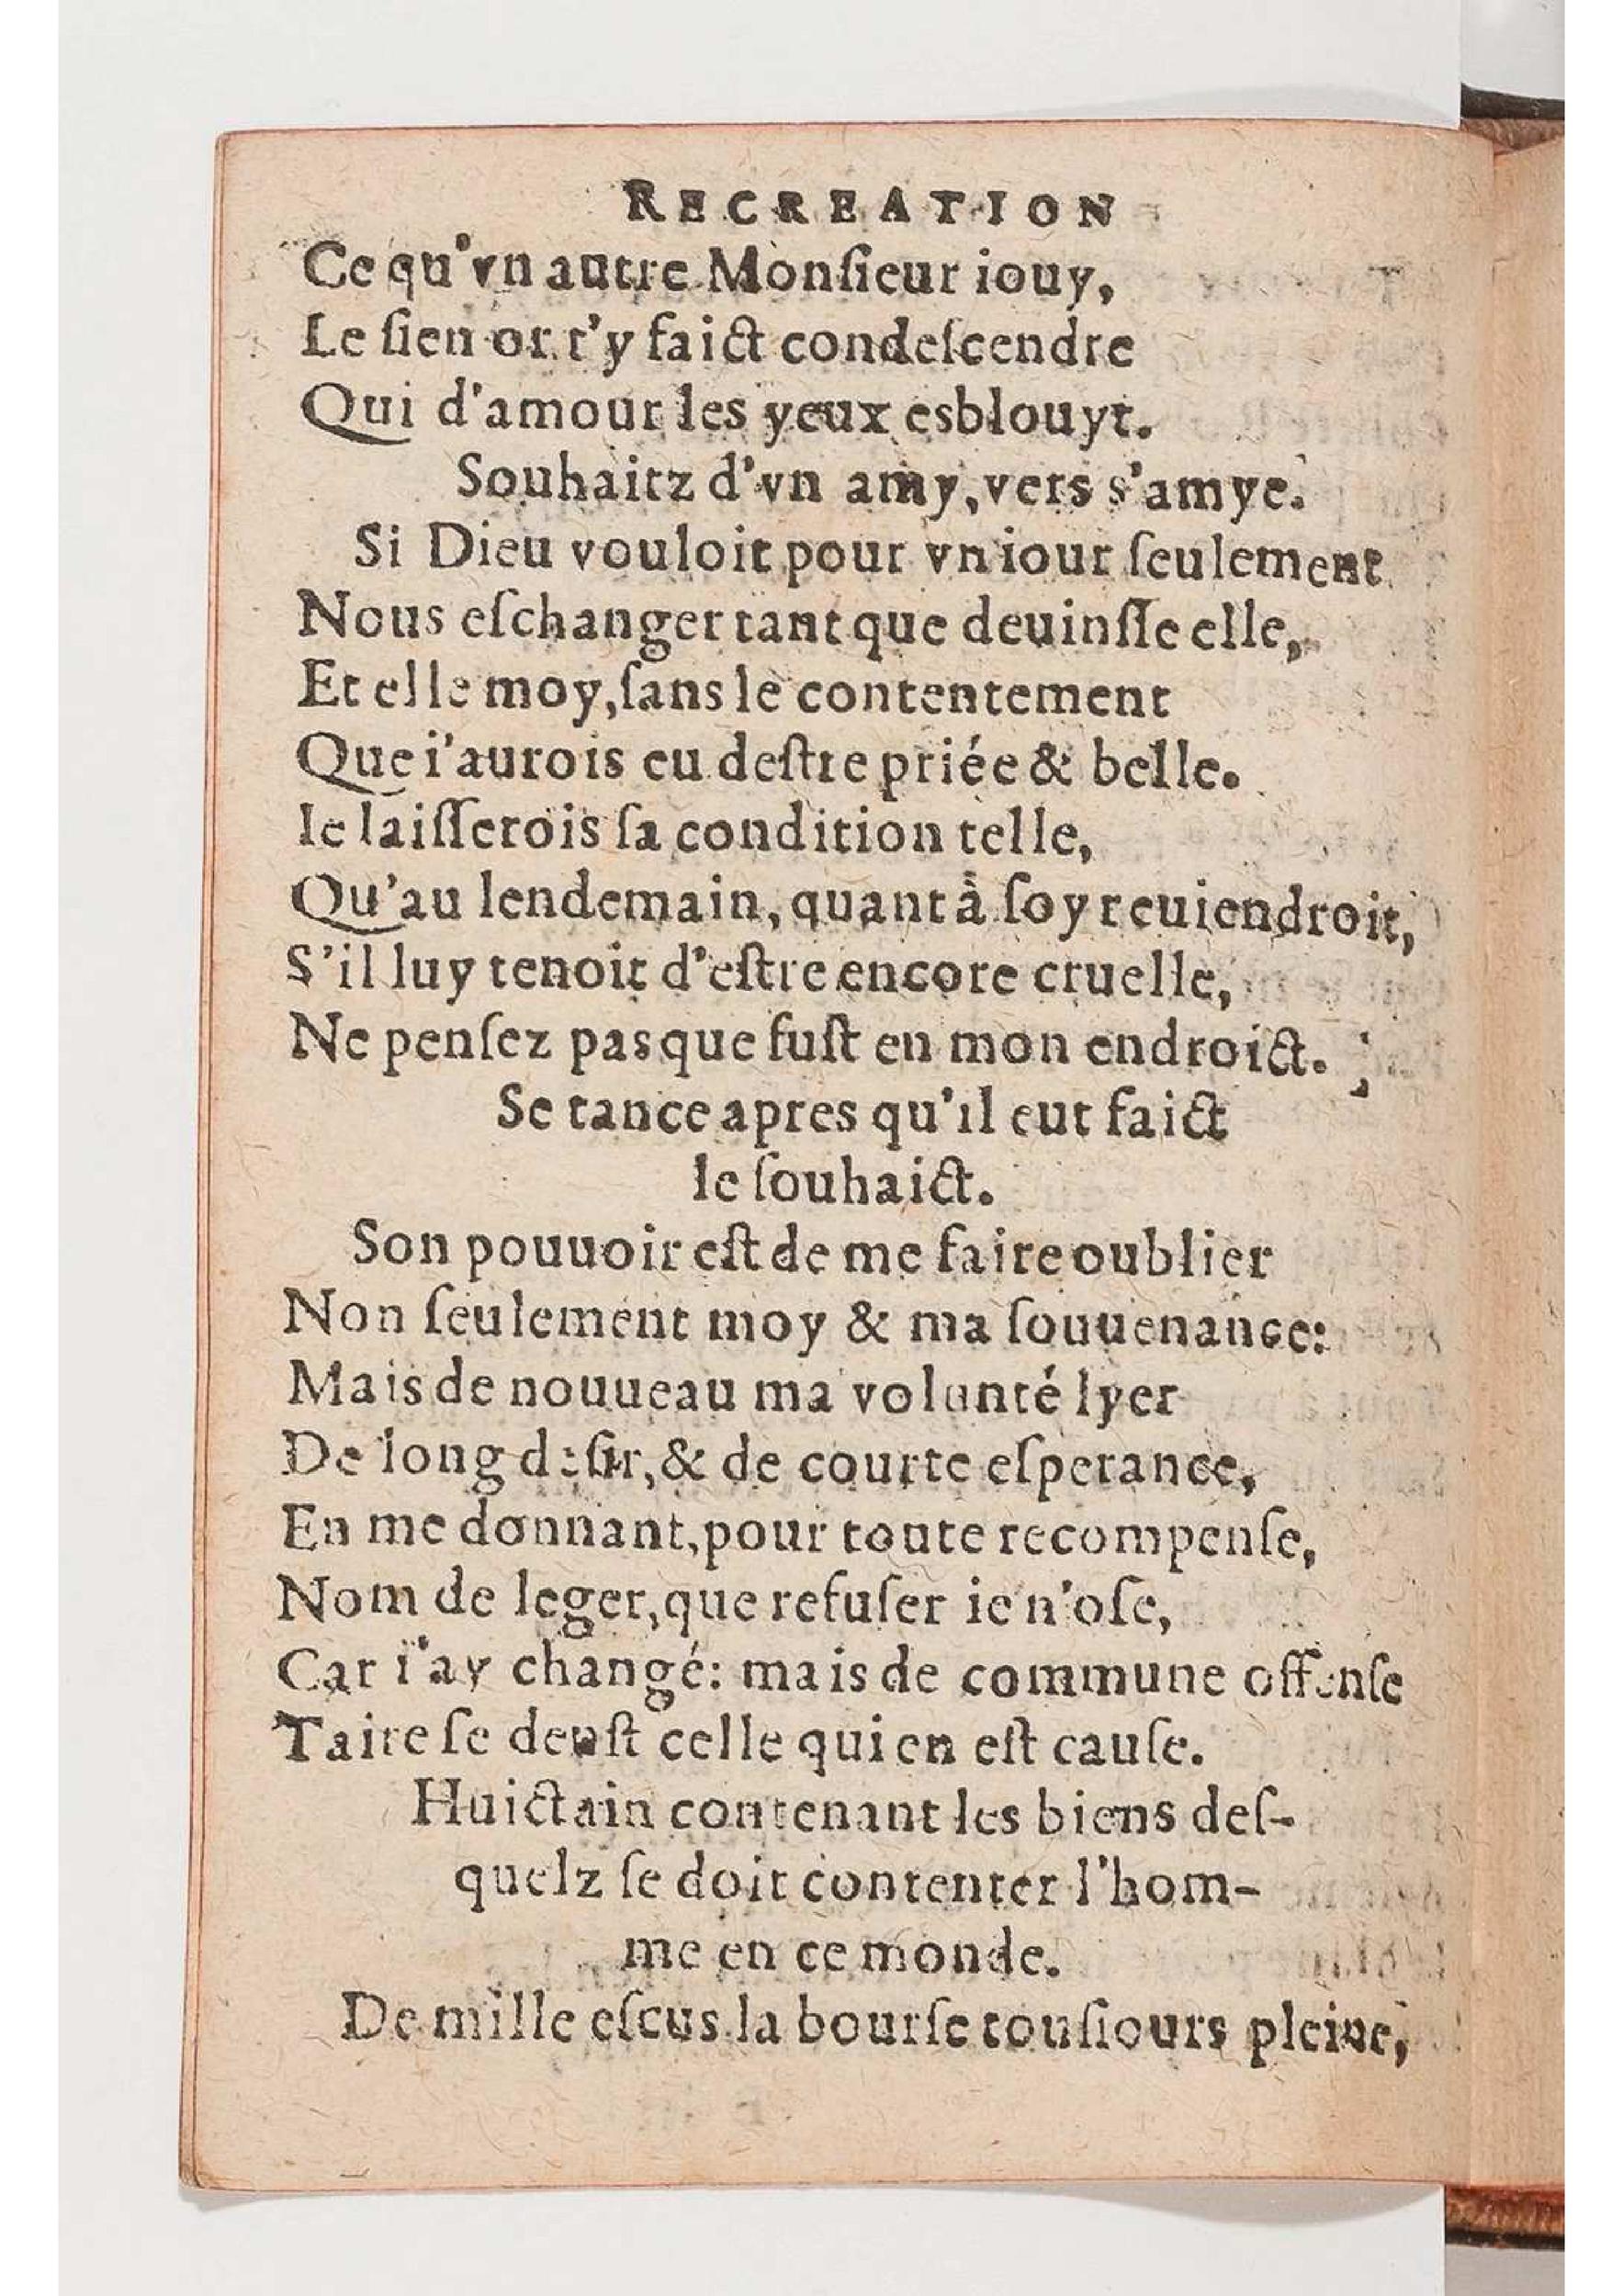 RECREATION
Ce qu'vn autre Monſieur iouy,
Le ſien or t'y faict condeſcendre
Qui d'amour les yeux esblouyt.
Souhaitz d'vn amy, vers s'amye.
Si Dieu vouloit pour vn iour ſeulement
Nous eſchanger tant que deuinſſe elle,
Et elle moy, ſans le contentement
Que i'aurois eu deſtre priée & belle.
Ie laiſſerois ſa condition telle,
Qu'au lendemain, quant à ſoy reuiendroit,
S'il luy tenoit d'eſtre encore cruelle,
Ne penſez pas que fuſt en mon endroict.
Se tance apres qu'il eut faict
le ſouhaict.
Son pouuoir eſt de me faire oublier
Non ſeulement moy & ma ſouuenance:
Mais de nouueau ma volunté lyer
De long deſir, & de courte eſperance,
En me donnant, pour toute recompenſe,
Nom de leger, que refuſer ie n'oſe,
Car i'ay changé: mais de commune offenſe
Taire ſe deuſt celle qui en eſt cauſe.
Huictain contenant les biens deſ-
quelz ſe doit contenter l'hom-
me en ce monde.
De mille eſcus la bourſe touſiours pleine,